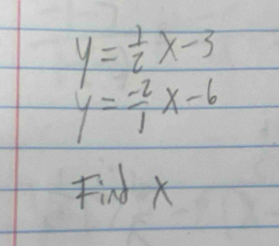 y = 1/2 x - 3
y = -2/1 x - 6
Find x